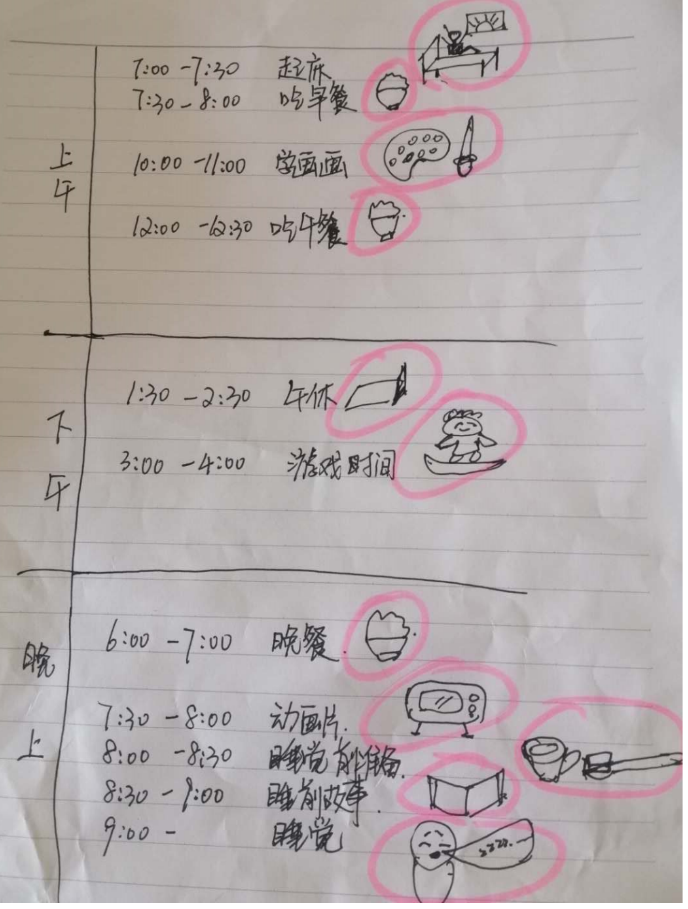 上午
7:00 - 7:30 起床
7:30 - 8:00 吃早餐
10:00 - 11:00 学画画
12:00 - 12:30 吃午餐
下午
1:30 - 2:30 午休
3:00 - 4:00 游戏时间
晚上
6:00 - 7:00 晚餐.
7:30 - 8:00 动画片.
8:00 - 8:30 睡觉前准备.
8:30 - 9:00 睡前故事.
9:00 - 睡觉
zzzz.